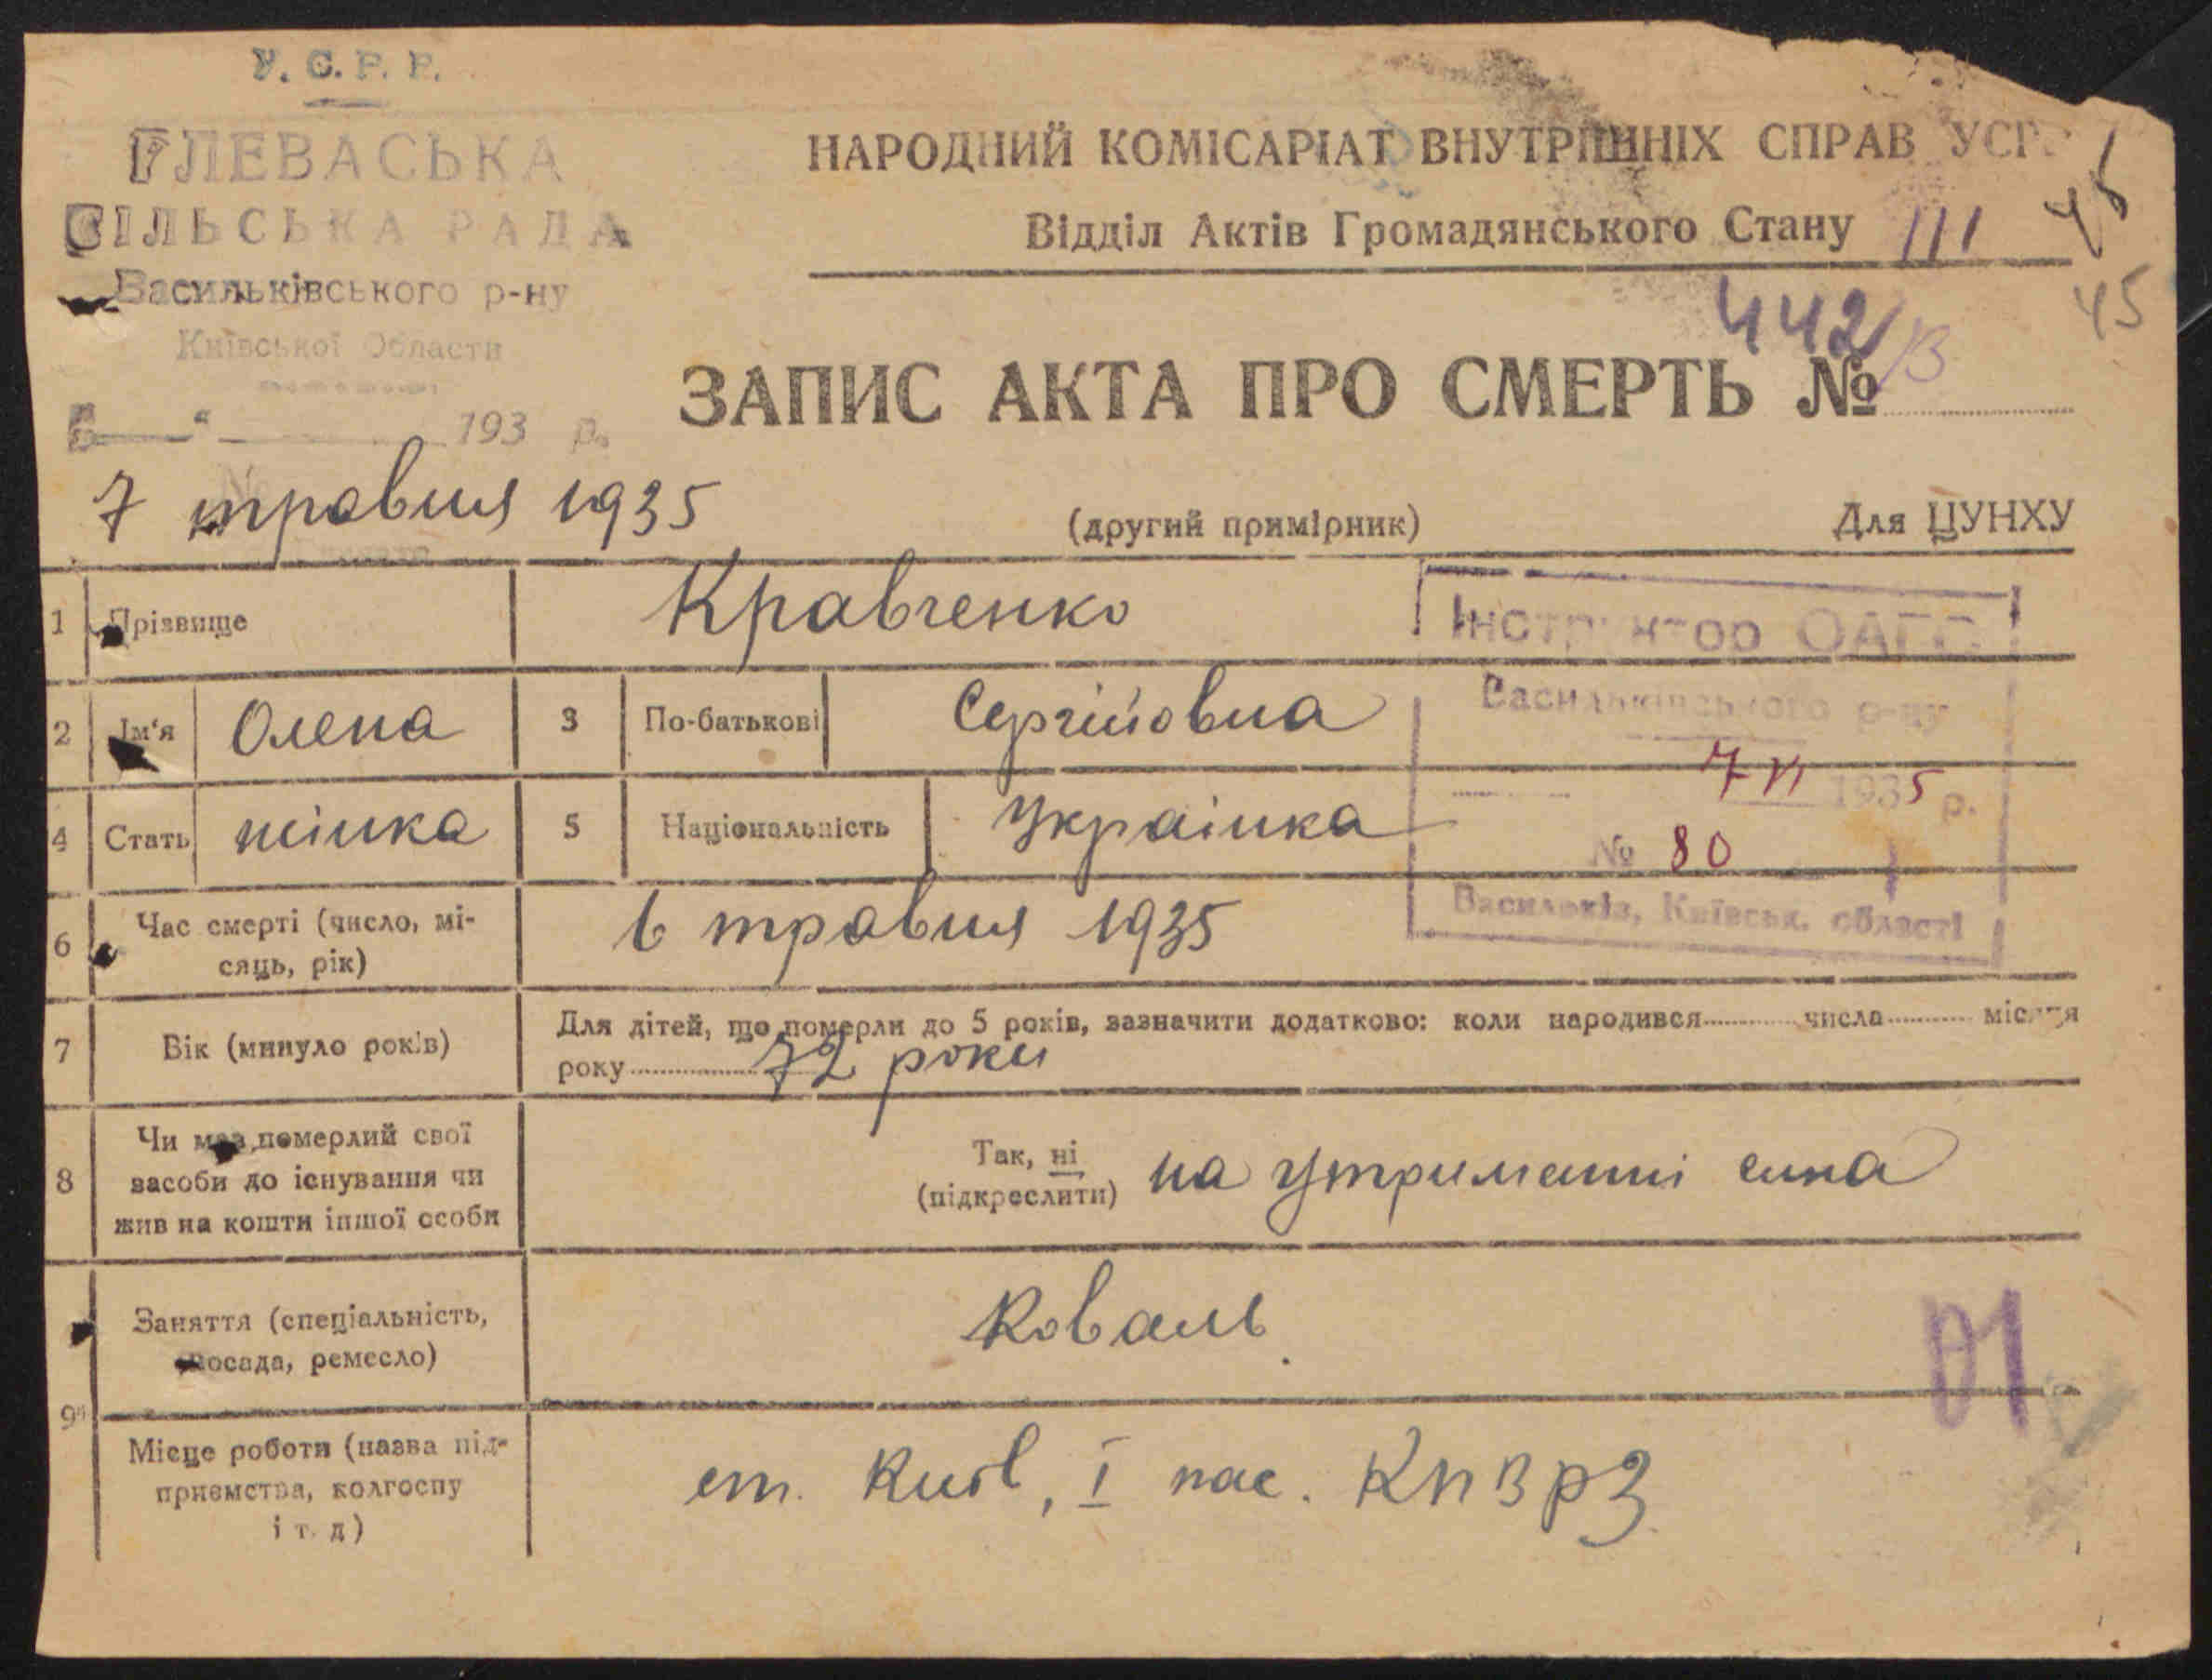 У. С. Р. Р.
ГЛЕВАСЬКА
СІЛЬСЬКА РАДА
Васильківського р-ну
Київської Области
193 р.
7 травня 1935
НАРОДНИЙ КОМІСАРІАТ ВНУТРІШНІХ СПРАВ УСР
Відділ Актів Громадянського Стану
111
45
45
442/В
ЗАПИС АКТА ПРО СМЕРТЬ №
(другий примірник)
Для ЦУНХУ
1 Прізвище Кравченко
Інструктор ОАГС
Васильківського р-ну
7 VI 1935 р.
№ 80
Васильків, Київськ. області
2 Ім'я Олена 3 По-батькові Сергійовна
4 Стать жінка 5 Національність Українка
6 Час смерті (число, мі-
сяць, рік) 6 травня 1935
7 Вік (минуло років) Для дітей, що померли до 5 років, зазначити додатково: коли народився числа місяця
року 72 роки
8 Чи мав померлий свої
засоби до існування чи
жив на кошти іншої особи
Так, ні
(підкреслити)
на утриманні сина
9 Заняття (спеціальність,
посада, ремесло) Коваль
01
Місце роботи (назва під-
приємства, колгоспу
і т. д)
ст. Київ, І пас. КПВРЗ